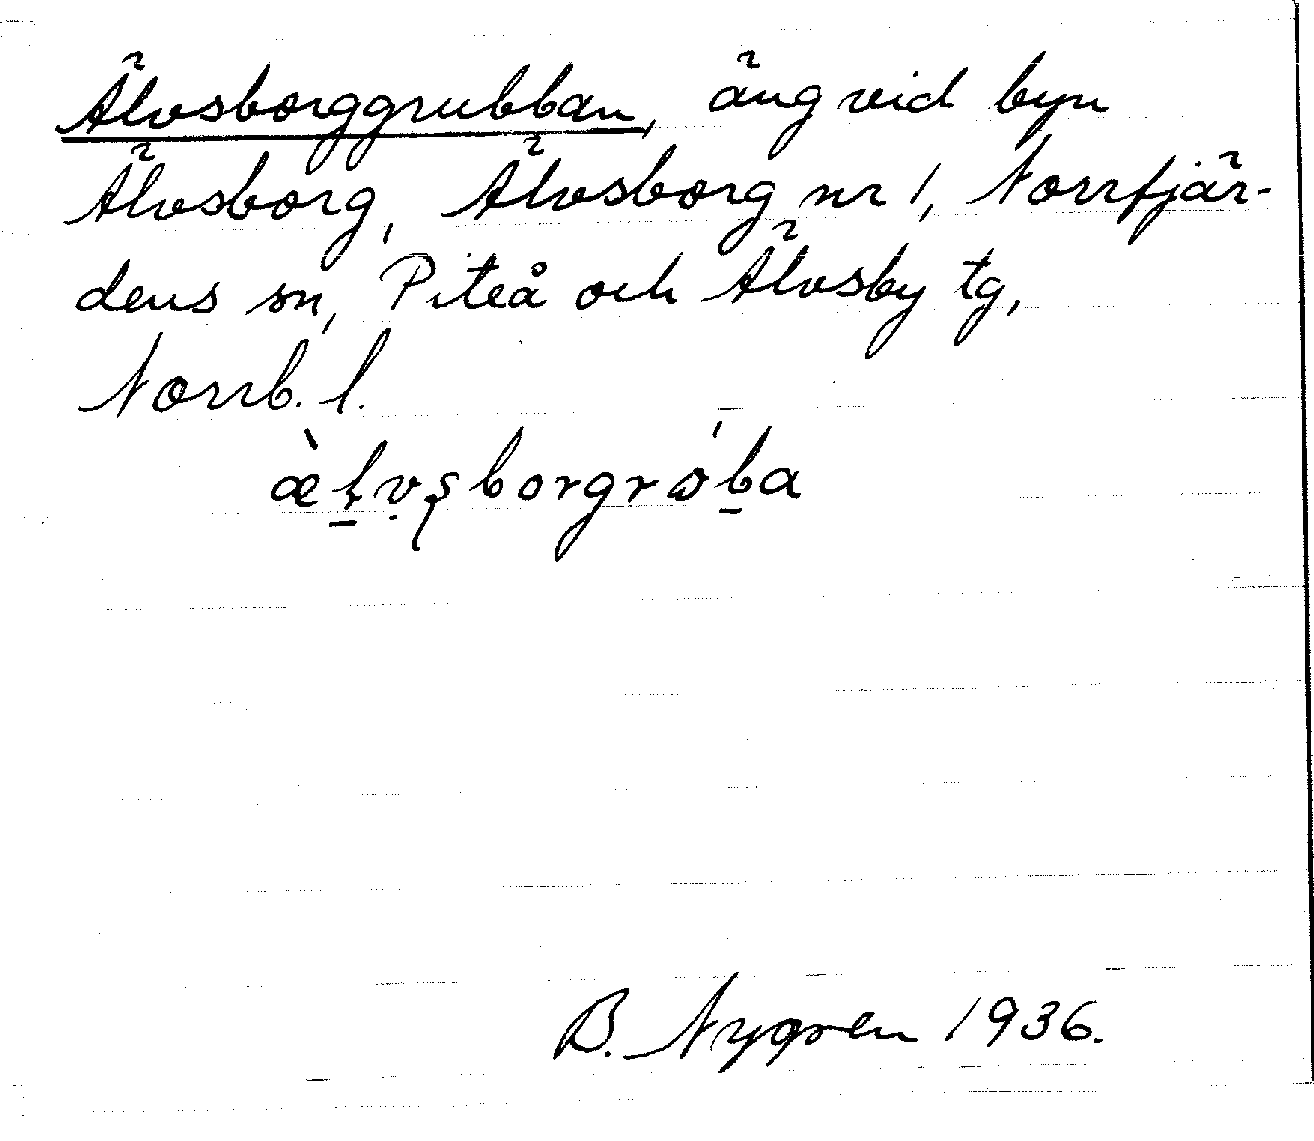 Älvsborggrubban, äng vid byn
Älvsborg, Älvsborg nr 1, Norrfjär-
dens sn, Piteå och Älvsby tg,
Norrb. l.
B. Nygren 1936.